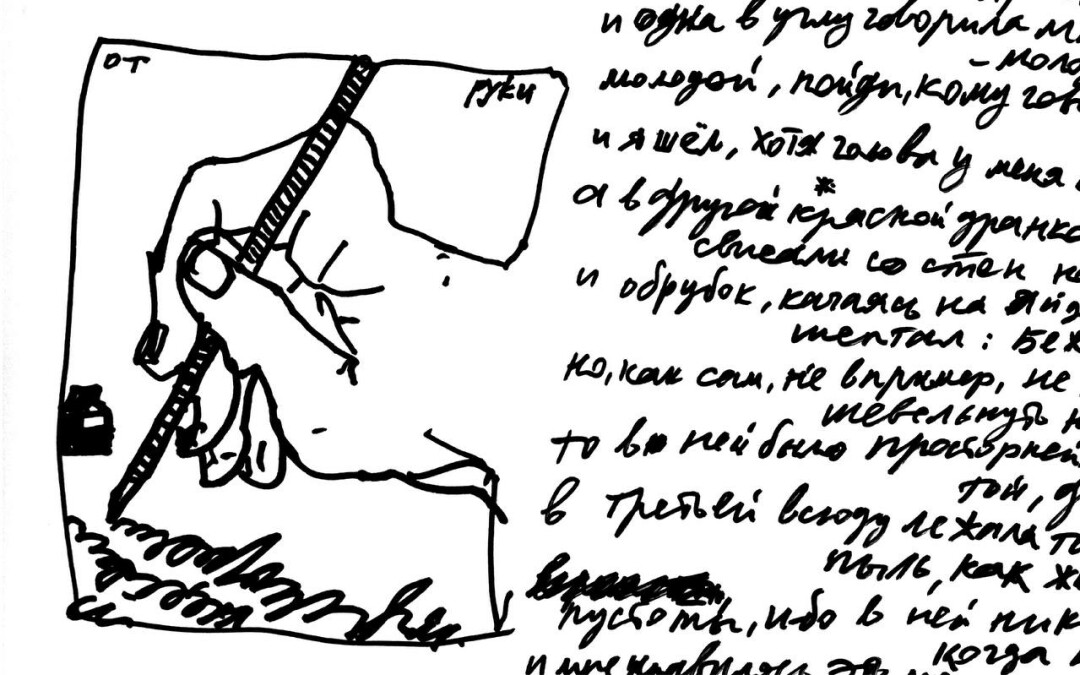 от руки
и одна в углу говорила
– моло
молодой, пойди, кому гов
и я шёл, хотя головы у меня
а в другой красной дранка
свисали со стен
и обрубок, качаясь на
шептал: Беж
но, как сам, не в пример, не
шевельнуть н
то в ней было просторней
той, д
в третьей всюду лежала
пыль, как ж
пустоты, ибо в ней ник
когда
и мне нравилась